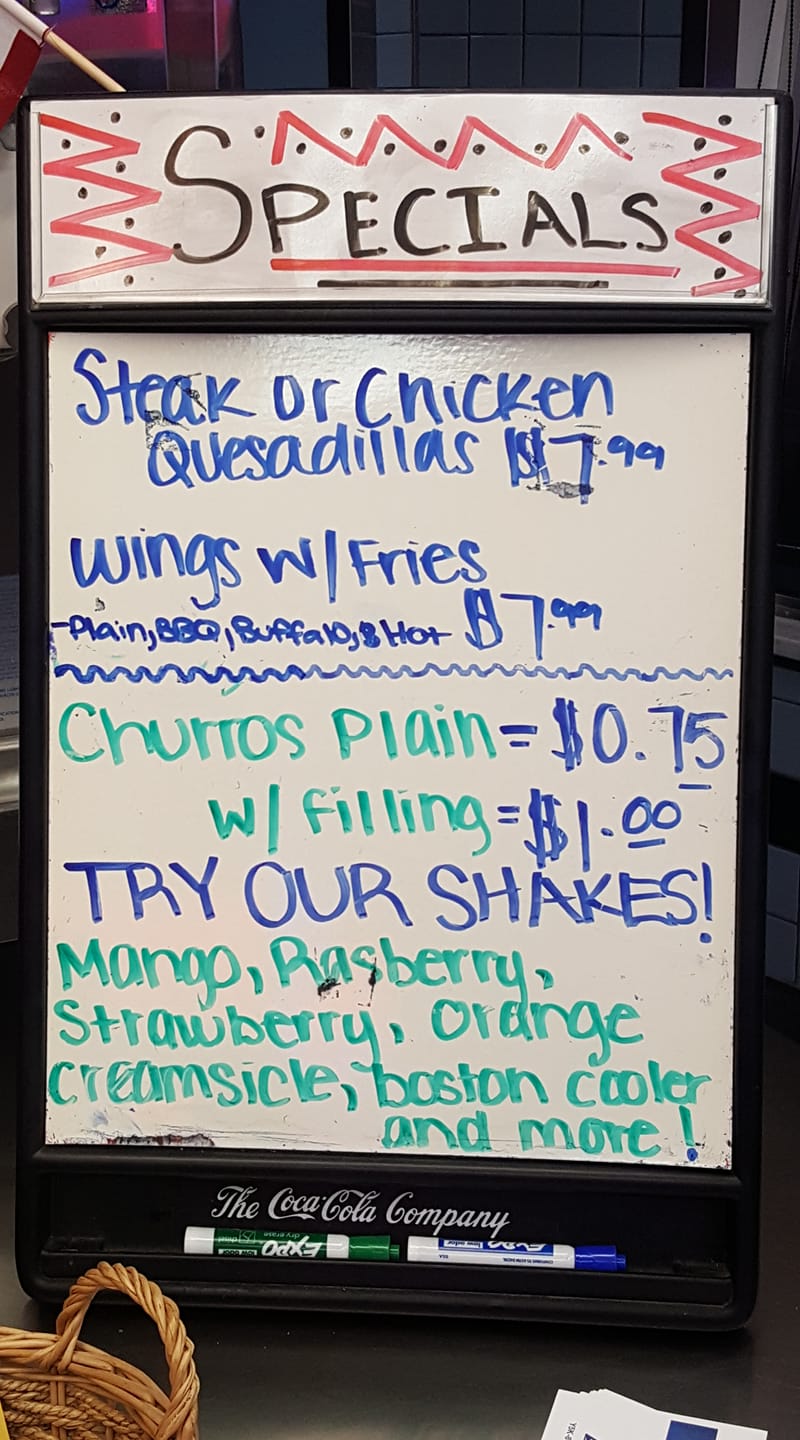 SPECIALS
Steak or Chicken
Quesadillas $7.99
Wings w/Fries
-Plain, BBQ, Buffalo, & Hot $7.99
Churros Plain = $0.75
w/ filling = $1.00
TRY OUR SHAKES!
Mango, Rasberry,
Strawberry, Orange
creamsicle, boston cooler
and more!
The Coca-Cola Company
EXPO dry erase
EXPO